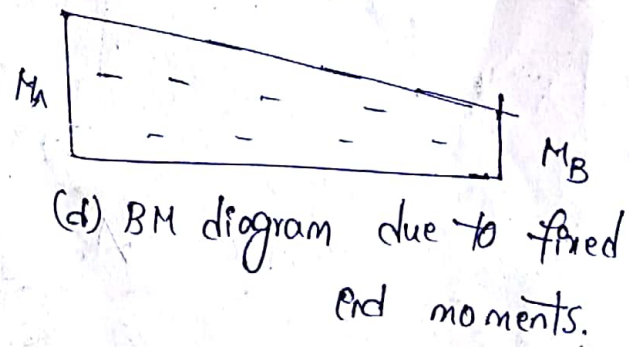 M_A
M_B
(d) BM diagram due to fixed
end moments.